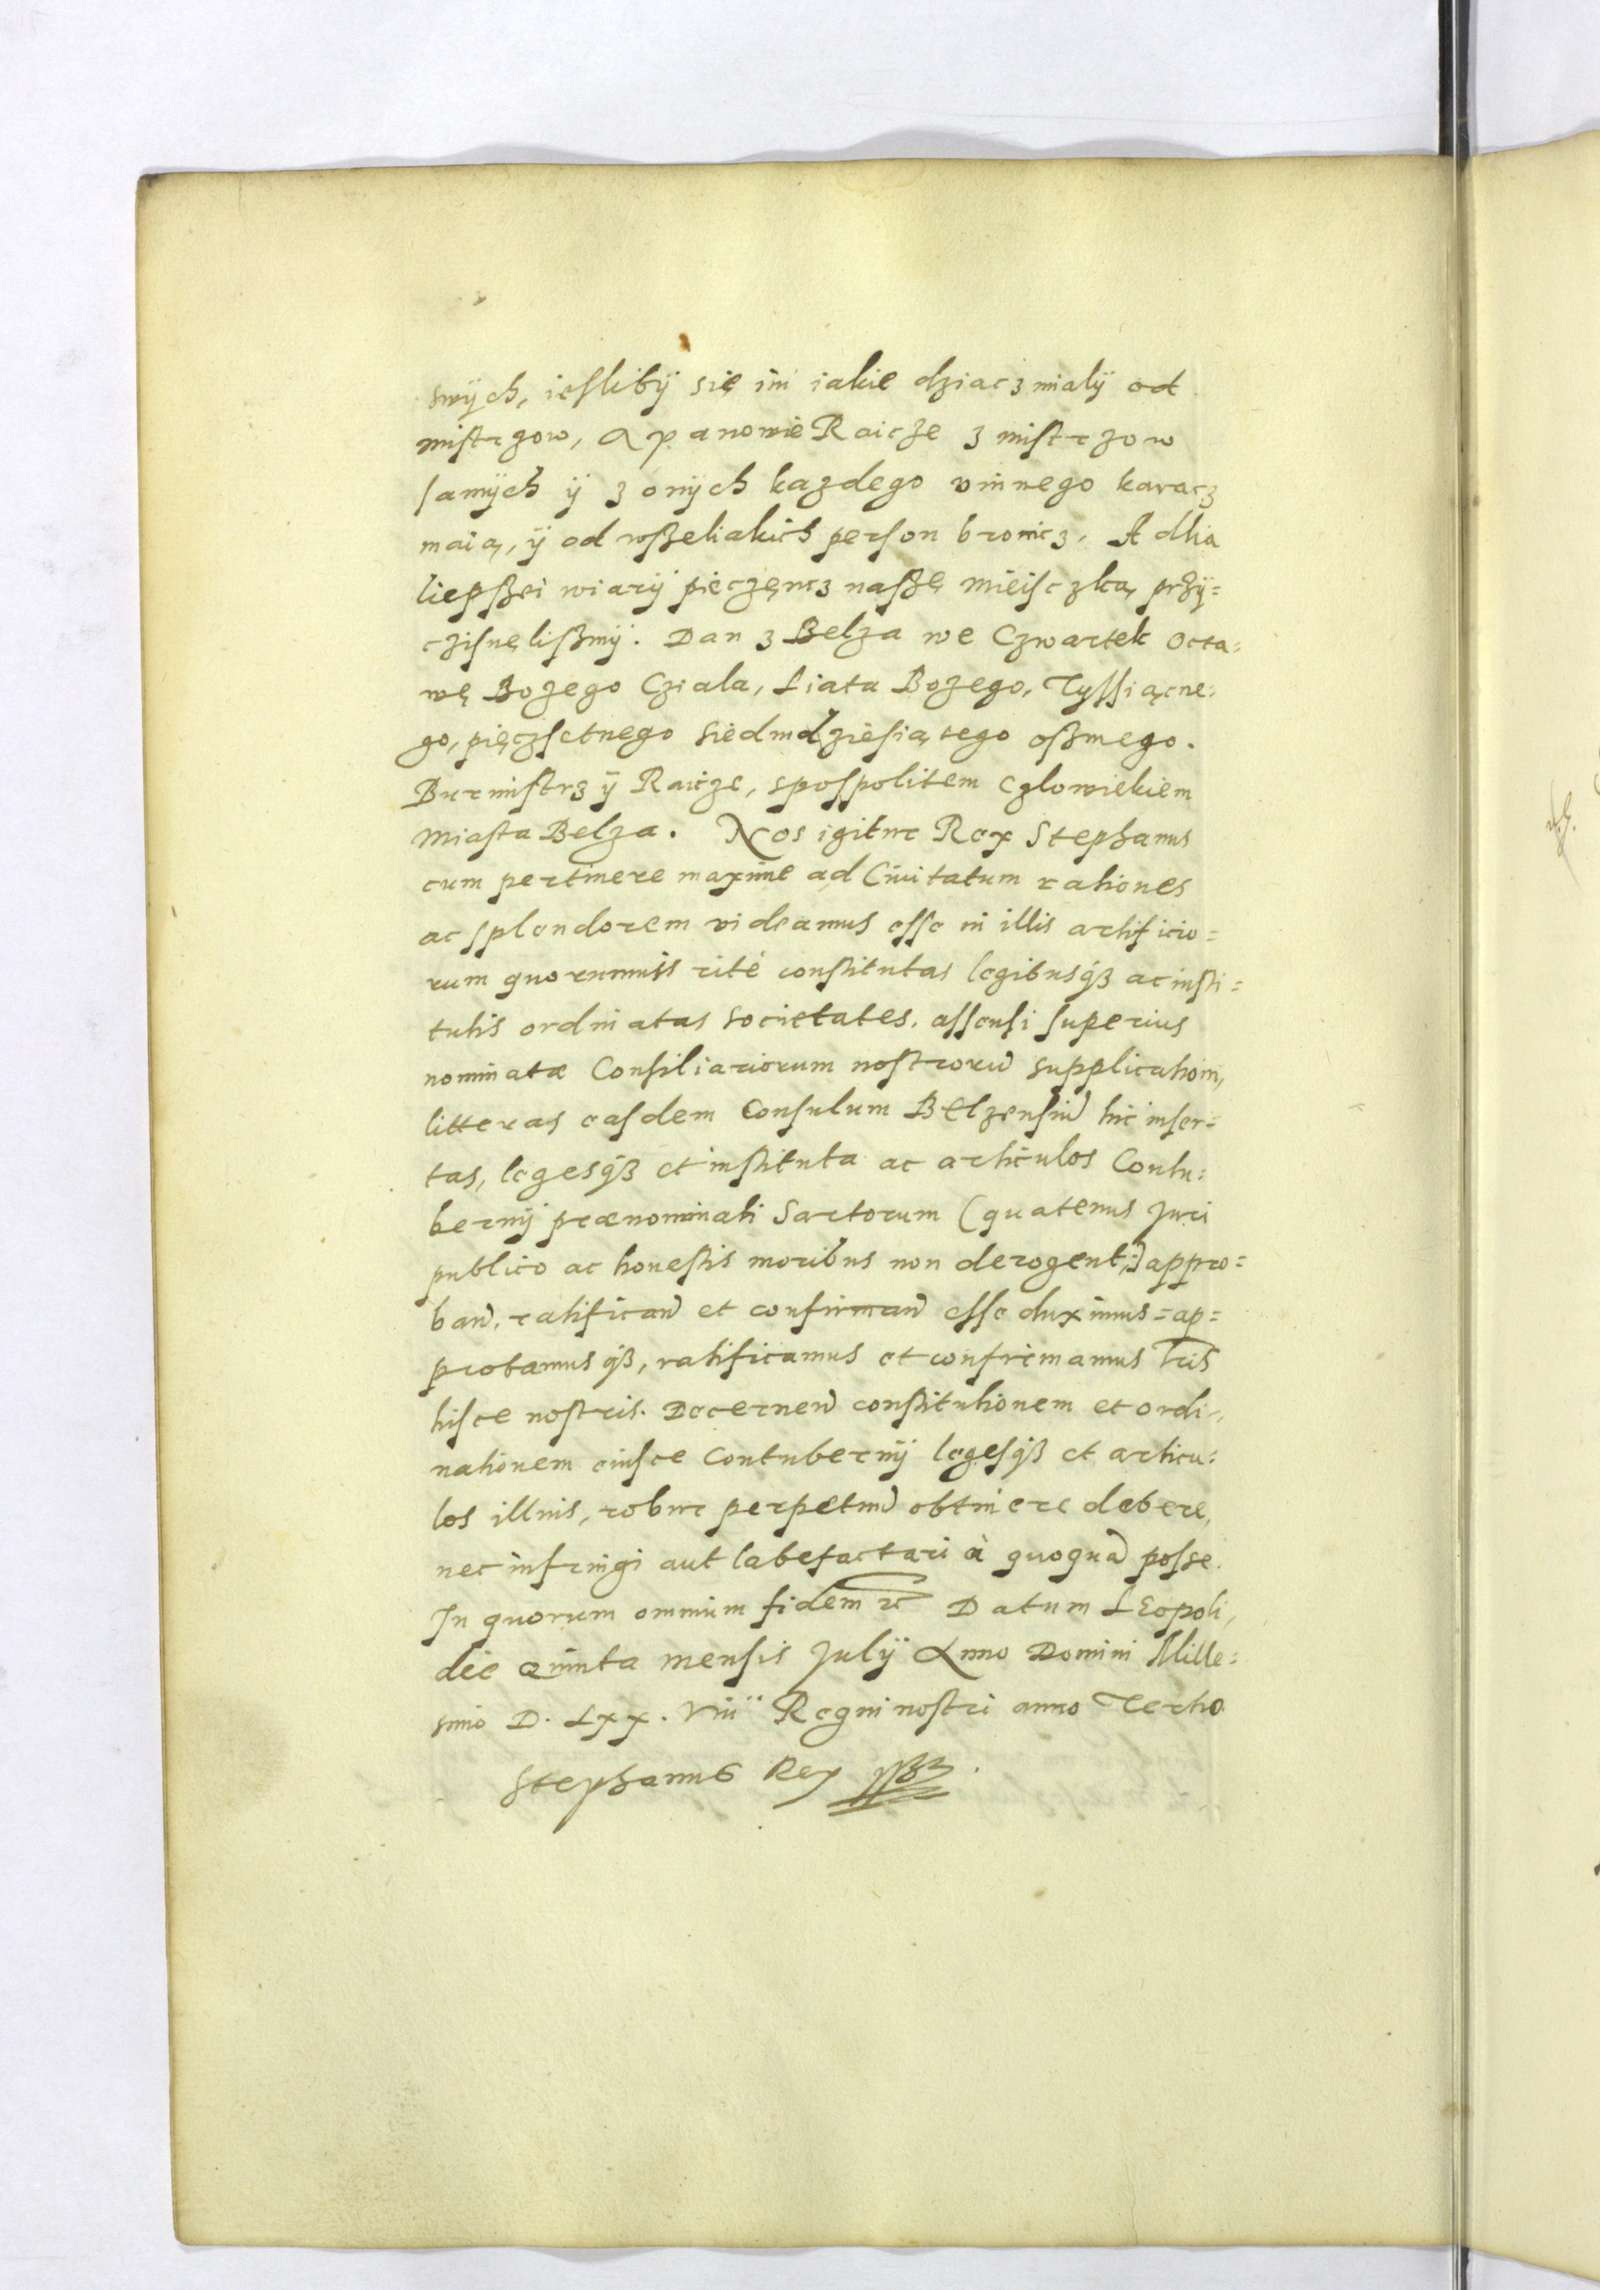 swych, iesliby się im iakie dziacz mialy od
mistrzow, A panowie Raicze z mistrzow
samych y z onych kazdego vinnego karacz
maią, y od wszeliakich person bronicz. A dlia
liepszei wiary pieczęncz naszę mieisczką przy=
czisnęliszmy. Dan z Belza we Czwartek Octa=
wę Bozego Cziala, Liata Bozego, Tyssiącne=
go, pięczsetnego siedmdziesiątego oszmego.
Burmistrz y Raicze, spospolitem czlowiekiem
Miasta Belza. Nos igitur Rex Stephanus
cum pertinere maxime ad Ciuitatum rationes
ac splendorem videamus esse in illis artificio=
rum quorumuis rité constitutas legibusqȝ ac insti=
tutis ordinatas societates. assensi superius
nominatæ Consiliariorum nostroru supplicationi,
litteras easdem Consulum Belzensiu hic inser=
tas, legesqȝ et instituta ac articulos Contu=
bernij prænominati Sartorum (quatenus Juri
publico ac honestis moribus non derogent;) appro=
ban. ratifican et confirman esse duximus = ap=
probamusqȝ, ratificamus et confirmamus lris
hisce nostris. Decernen constitutionem et ordi=
nationem eiusce Contubernij legesqȝ et articu=
los illius, robur perpetuu obtinere debere,
nec infringi aut labefactari à quoqua posse.
In quorum omnium fidem etc Datum Leopoli,
die Quinta mensis Julij Anno Domini Mille=
simo D. Lxx. viii Regni nostri anno Tertio
Stephanus Rex sszz.